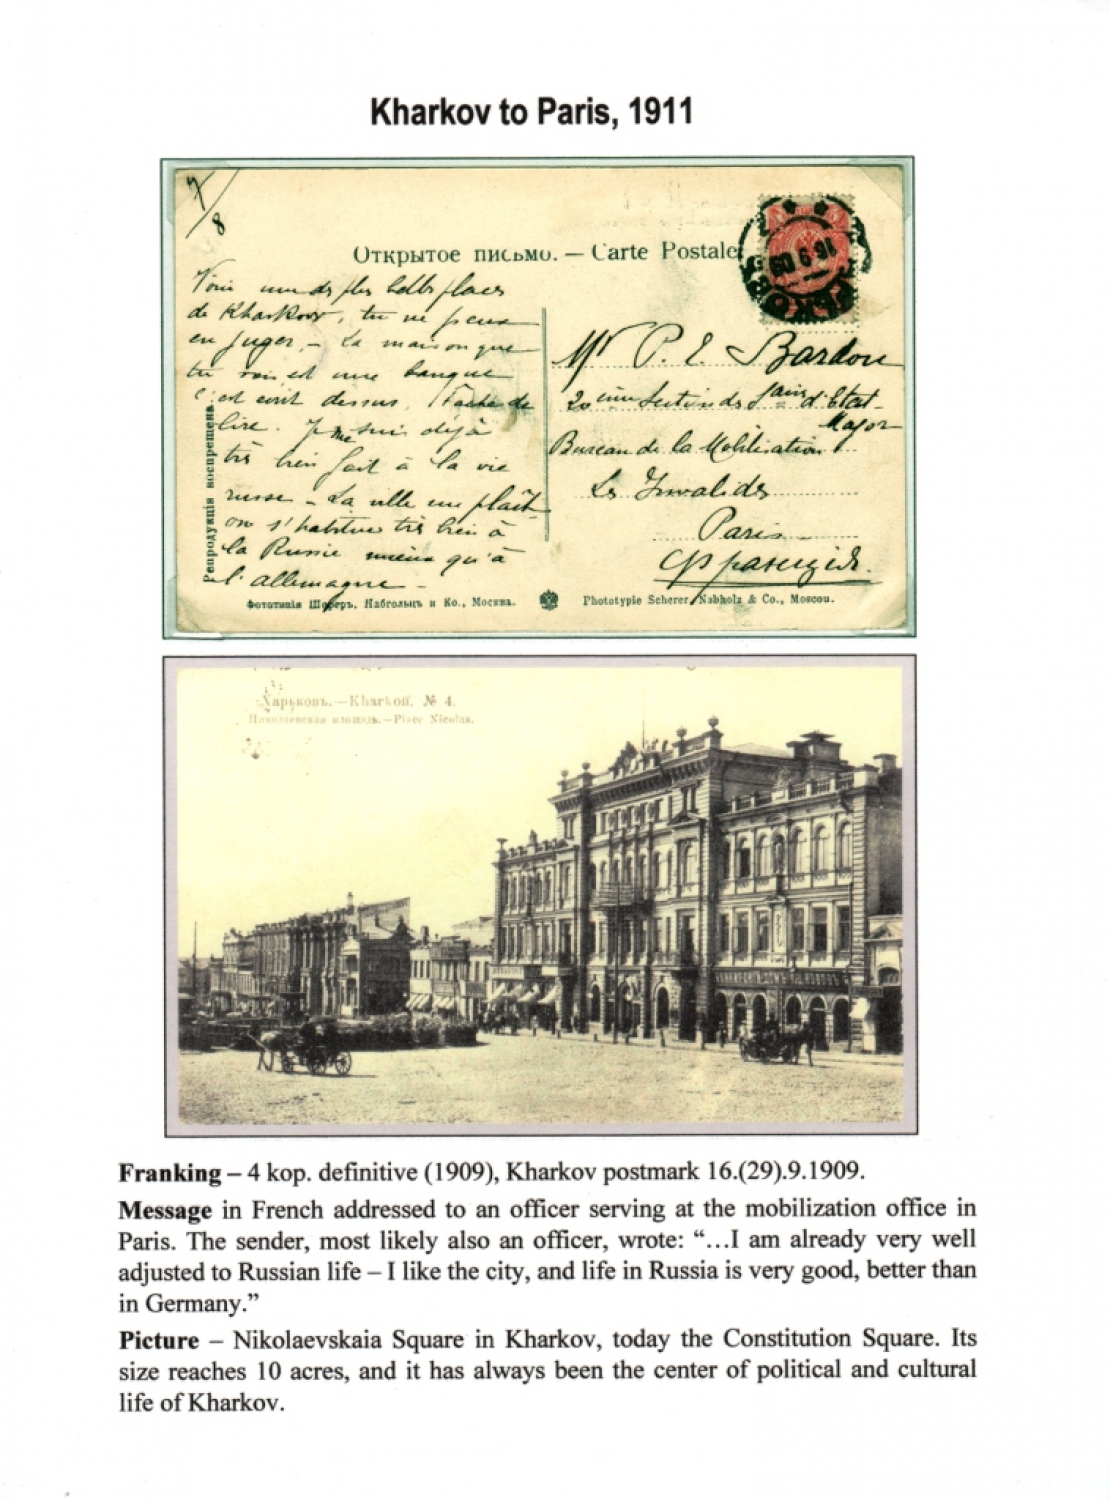 Kharkov to Paris, 1911
7/8
Открытое письмо. — Carte Postale
16 9 09
Voici une des plus belles places
de Kharkow, tu ne peux
en juger. — La maison que
tu vois est une banque
c'est écrit dessus. Tâche de
lire. Je me suis déjà
très bien fait à la vie
russe — La ville me plaît
on s'habitue très bien à
la Russie mieux qu'à
l'allemagne —
Mr P. E. Bardou
20 ième Section de d'Etat-
Major
Bureau de la Mobilisation
Les Invalides
Paris
Франція.
Репродукція воспрещена
Фототипія Шереръ, Набгольцъ и Ко., Москва. Phototypie Scherer, Nabholz & Co., Moscou.
Харьковъ.—Kharkoff. № 4.
Николаевская площадь.—Place Nicolas.
Franking – 4 kop. definitive (1909), Kharkov postmark 16.(29).9.1909.
Message in French addressed to an officer serving at the mobilization office in
Paris. The sender, most likely also an officer, wrote: “…I am already very well
adjusted to Russian life – I like the city, and life in Russia is very good, better than
in Germany.”
Picture – Nikolaevskaia Square in Kharkov, today the Constitution Square. Its
size reaches 10 acres, and it has always been the center of political and cultural
life of Kharkov.